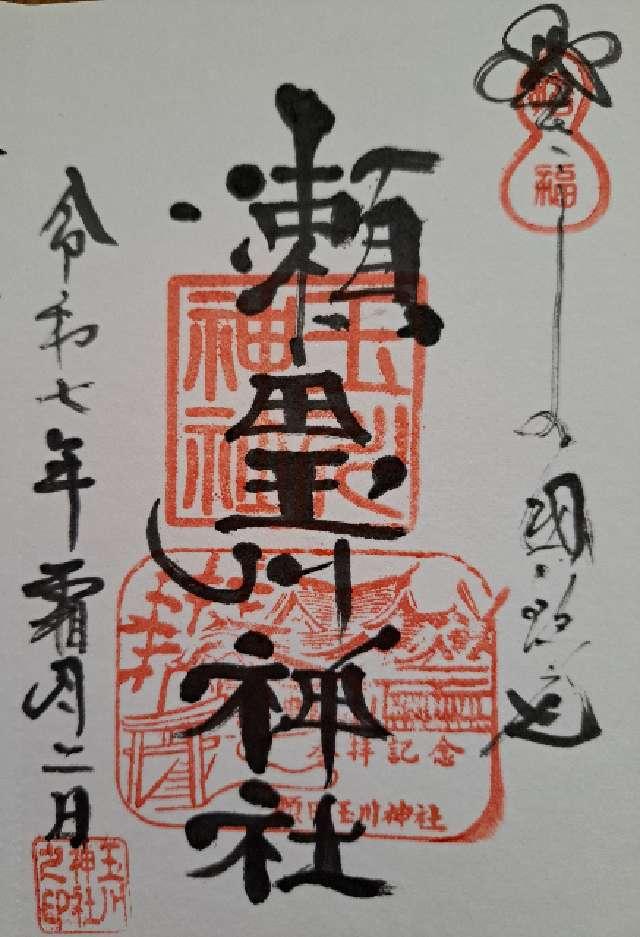 福
瀬田玉川神社
玉川神社
参拝記念
瀬田玉川神社
令和七年霜月二日
玉川神社之印